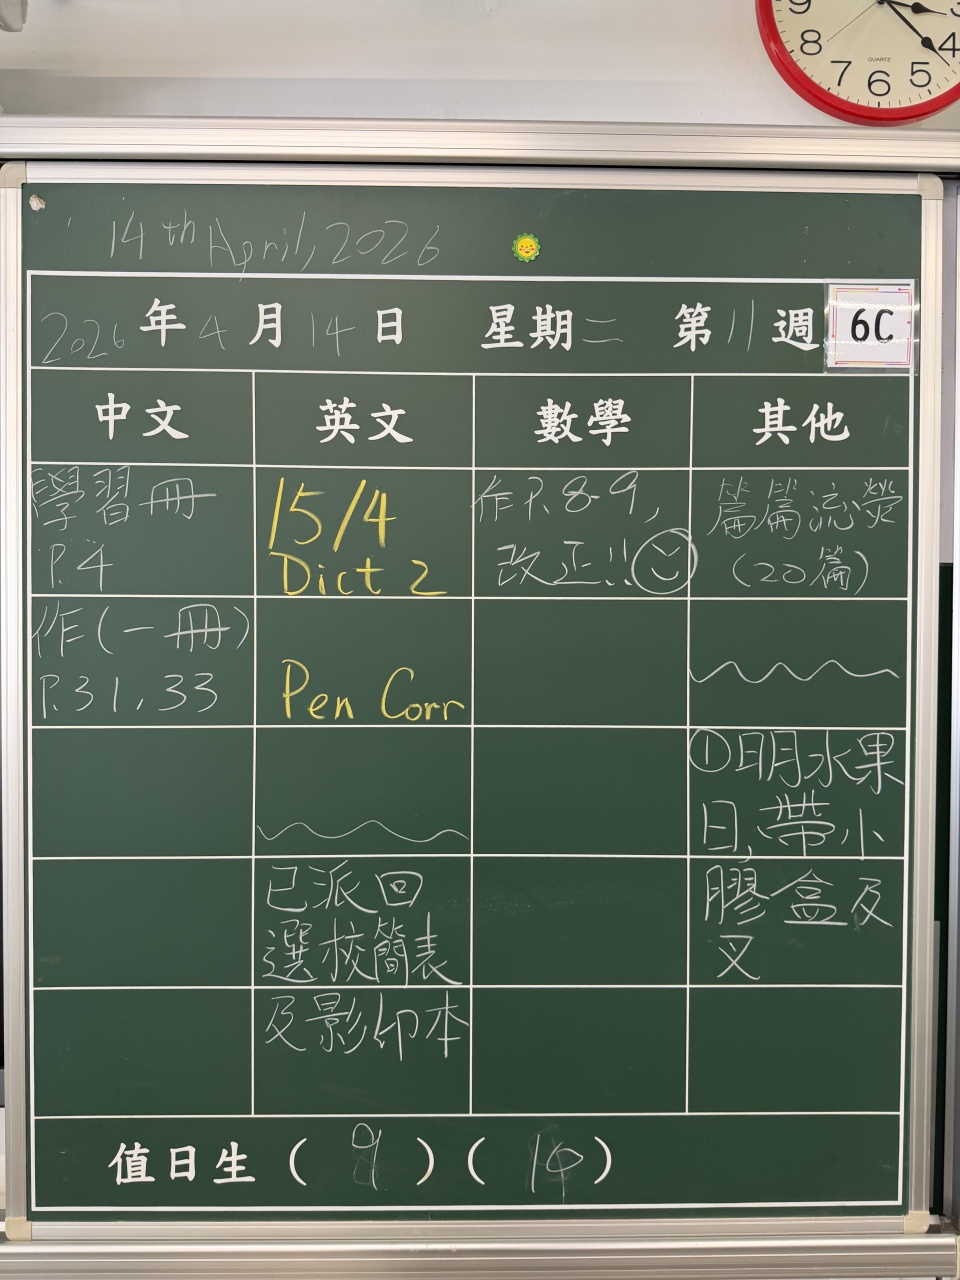 14th April, 2026
2026年4月14日 星期二 第11週 6C
中文 英文 數學 其他
學習冊
P.4
15/4
Dict 2
作P.8-9,
改正!!
篇篇流熒
(20篇)
作(一冊)
P.31, 33
Pen Corr
①明水果
日,帶小
膠盒及
叉
已派回
選校簡表
及影印本
值日生(9)(
)
9
8
7
6
5
4
QUARTZ